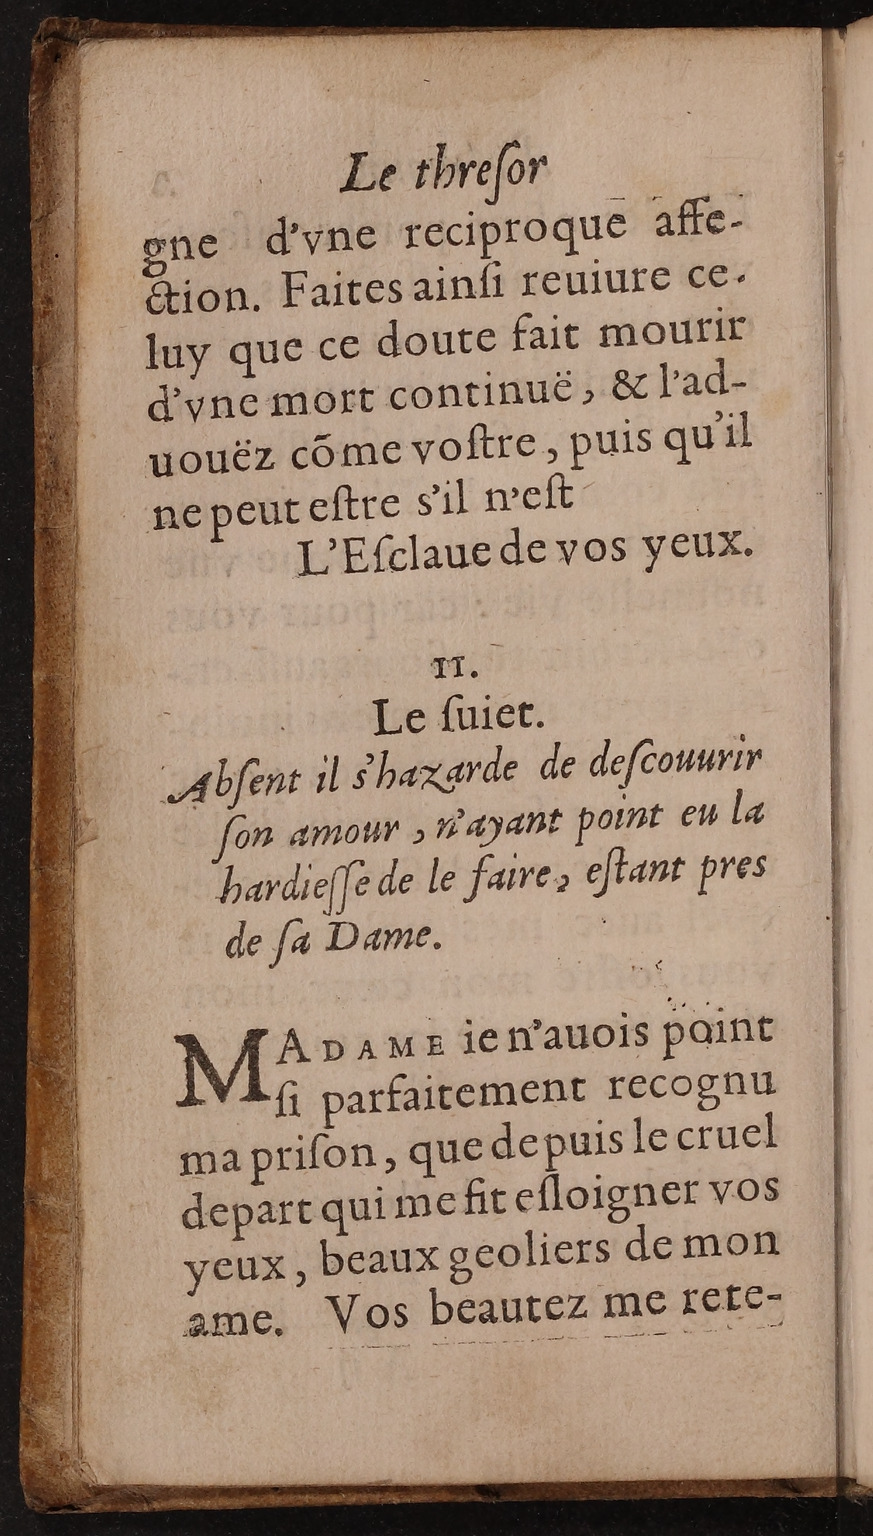 Le threſor
gne d'vne reciproque affe-
ction. Faites ainſi reuiure ce-
luy que ce doute fait mourir
d'vne mort continuë, & l'ad-
uouëz cõme voſtre, puis qu'il
ne peut eſtre s'il n'eſt
L'Eſclaue de vos yeux.
II.
Le ſuiet.
Abſent il s'hazarde de deſcouurir
ſon amour, n'ayant point eu la
hardieſſe de le faire, eſtant pres
de ſa Dame.
MADAME ie n'auois point
ſi parfaitement recognu
ma priſon, que depuis le cruel
depart qui me fit eſloigner vos
yeux, beaux geoliers de mon
ame. Vos beautez me rete-